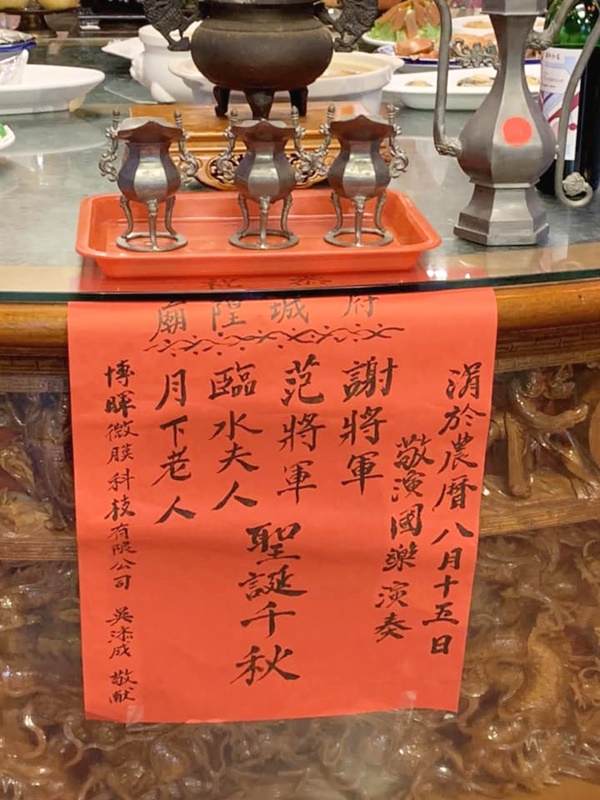 府城隍廟
涓於農曆八月十五日
敬演國樂演奏
謝將軍
范將軍
臨水夫人
月下老人
聖誕千秋
博暉微膜科技有限公司 吳添成 敬献